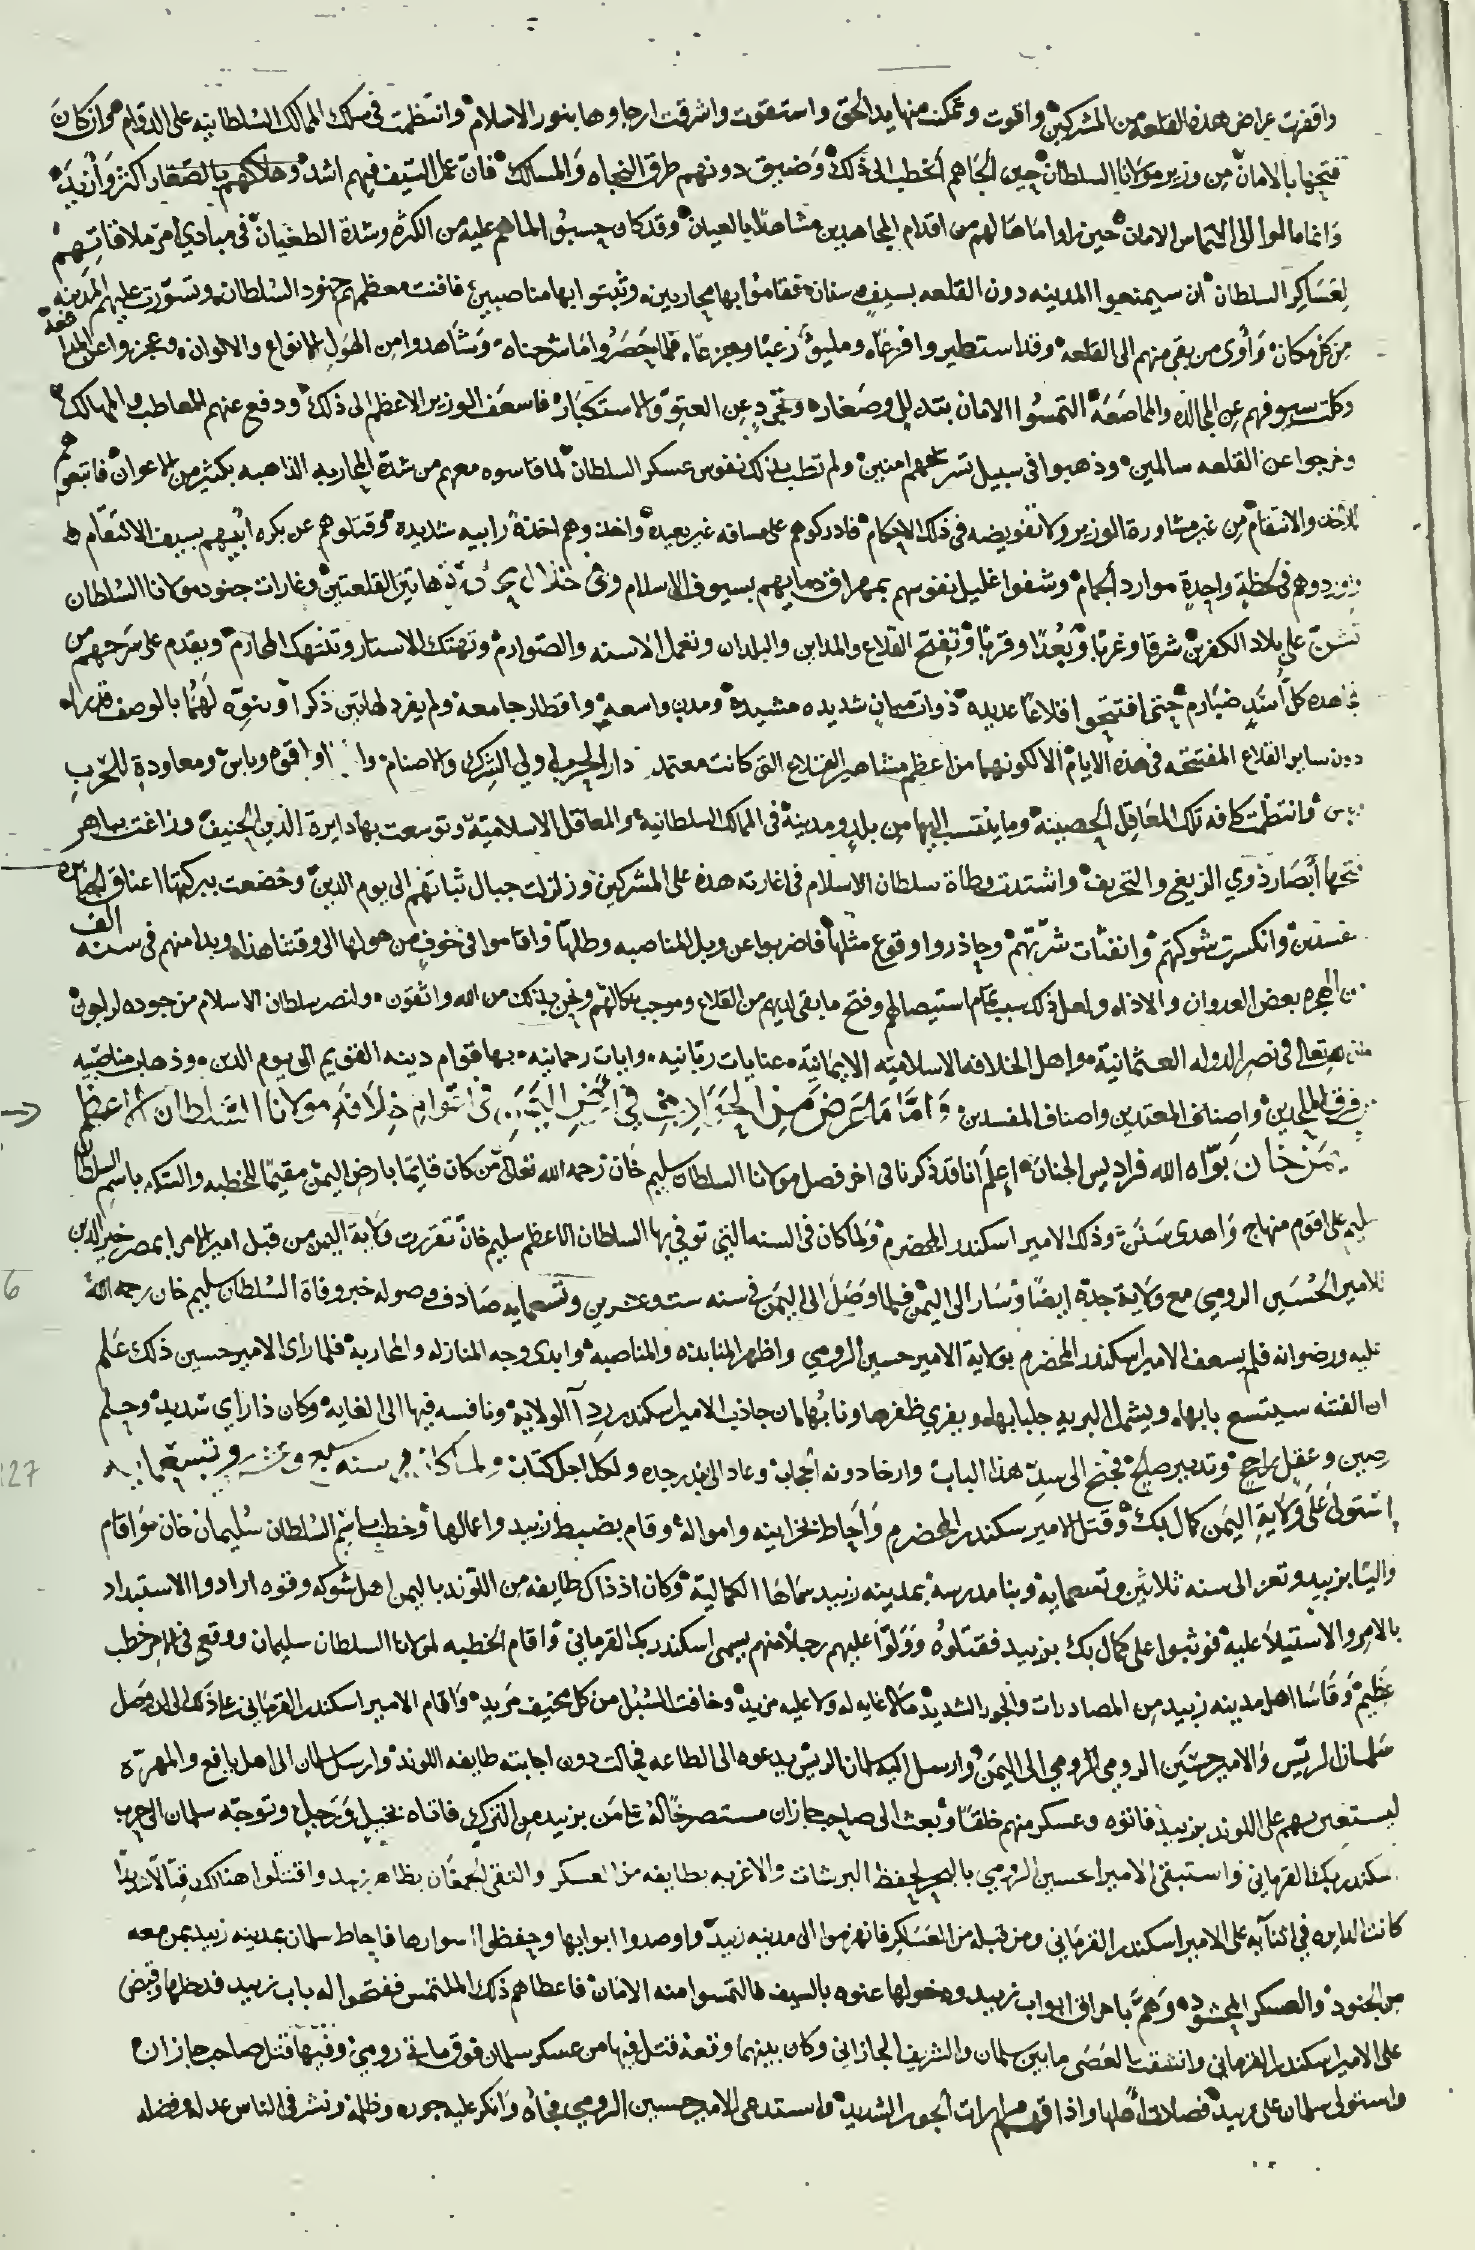 واقفرت عراص هذه القلعه من المشركين واقوت وتمكنت منها يد الحق واستقوت واشرقت ارجاوها بنور الاسلام وانتظمت في سلك الممالك السلطانيه على الدوام وان كان
فتحها بالامان من وزير مولانا السلطان حين الجاهم الخطب الى ذلك وضيق دونهم طرق النجاه والمسالك فان عمل السيف فيهم اشد وهلاكهم بالصغار اكثر وازيد
وانما مالوا الى التماس الامان حين راوا ما هالهم من اقدام المجاهدين مشاهدا بالعيان وقد كان حسبوا لما هم عليه من الكثره وشدة الطغيان في مبادي امر ملاقاتهم
لعساكر السلطان ان سيمنعوا المدينه دون القلعه بسيف وسنان فقاموا بها محاربين وثبتوا بها مناصبين فافنت معظمهم جنود السلطان وتسورت عليهم المدينه
من كل مكان واوى من بقي منهم الى القلعه وقد استطير وافزعا وملئوا رعبا وجزعا فلما حصروا ما شرحناه وشاهدوا من الهول الانواع والالوان وعجزوا عن المدافعه
وكلت سيوفهم عن المجالده والمماصعة التمسوا الامان بتذلل وصغار وتجرد عن العتو والاستكبار فاسعف الوزير الاعظم الى ذلك ودفع عنهم المعاطب والمهالك
وخرجوا عن القلعه سالمين وذهبوا في سبيل تسريحهم امنين ولم تطب بذلك نفوس عسكر السلطان لما قاسوه معهم من شدة المحاربه الذاهبه بكثير من الاعوان فاتبعوهم
للاخذ والانتقام من غير مشاورة الوزير ولا تفويضه في ذلك الاحكام فادركوهم على مسافه غير بعيده واخذوهم اخذة رابيه شديده وقتلوهم عن بكره ابيهم بسيف الانتقام
واوردوهم في لحظة واحدة موارد الحمام وشفوا غليل نفوسهم بمهراق دمايهم بسيوف الاسلام وفي خلال هاتين القلعتين وغارات جنود مولانا السلطان
تشن على بلاد الكفرين شرقا وغربا وبعدا وقربا وتفتح القلاع والمداين والبلدان وتعمل الاسنه والصوارم وتهتك الاستار وتنتهك المحارم ويقدم على من
مجاهده كل اسد ضبارم حتى افتتحوا قلاعا عديده ذوات مبان شديده مشيده ومدن واسعه واقطار جامعه ولم يفرد لهاتين ذكرا وينوه لهما بالوصف
دون ساير القلاع المفتتحه في هذه الايام الا لكونهما من اعظم مشاهير القلاع التي كانت معتمد دار الحرب ولي الشرك والاصنام اولو اقوم وباس ومعاودة للحرب
وانتظمت كافه تلك المعاقل الحصينه وما ينتسب اليها من بلد ومدينه في الممالك السلطانيه والمعاقل الاسلاميه وتوسعت بها دايرة الدين الحنيف وزاغت بباهر
فتحها ابصار ذوي الزيغ والتحريف واشتدت وطاة سلطان الاسلام في اغارته هذه على المشركين وزلزلت جبال ثباتهم الى يوم الدين وخضعت ببركتها اعناق
وانكسرت شوكتهم وانفثات شرتهم وحاذروا وقوع مثلها فاضربوا عن وبل المناصبه وطلها واقاموا في خوف من هولها الى وقتنا هذا وبدا منهم في سنه الف
من الهجره بعض العدوان والاذاه ولعل ذلك سبب تمام استيصالهم وفتح ما بقي لديهم من القلاع وموجب نكالهم ونحن بذلك من الله واثقون ولنصر سلطان الاسلام من جوده لراجون
تعالى في نصر الدوله العثمانية واهل الخلافه الاسلاميه الايمانية عنايات ربانيه وايات رحمانيه بها قوام دينه القويم الى يوم الدين وذهاب مناصبيه
فرق الملحدين واصناف المعتدين واصناف المفسدين واما ما عرض من الحوادث في ارض اليمن في ايام خلافة مولانا السلطان الاعظم
خان بواه الله فراديس الجنان اعلم انا قد ذكرنا في اخر فصل مولانا السلطان سليم خان رحمه الله تعالى من كان قايما بارض اليمن مقيما للخطبه والسكه باسم السلطان
سليم على اقوم منهاج واهدى سنن وذلك الامير اسكندر المخضرم ولما كان في السنه التي توفي بها السلطان الاعظم سليم خان تقررت ولاية اليمن من قبل امير الامرا بمصر خير الدين
للامير الحسين الرومي مع ولاية جدة ايضا وسار الى اليمن فلما وصل الى اليمن في سنه ست وعشرين وتسعمايه صادف وصوله خبر وفاة السلطان سليم خان رحمه الله
عليه ورضوانه فلم يسعف الامير اسكندر المخضرم بولاية الامير حسين الرومي واظهر المنابذه والمناصبه وابدى وجه المنازله والمحاربه فلما راى الامير حسين ذلك علم
ان الفتنه سيتسع بابها ويشمل البريه جلبابها ويفري ظفرها ونابها ان جاذب الامير اسكندر ردآ الولاية ونافسه فيها الى الغايه وكان ذا راي شديد وحلم
رصين وعقل راجح وتدبير صالح فجنح الى سد هذا الباب وارخا دونه الحجاب وعاد الى بندر جده ولكل اجل كتاب ولما كان في سنه سبع وعشرين وتسعمايه
استولى على ولاية اليمن كمال بك وقتل الامير اسكندر المخضرم واحاط بخزاينه وامواله وقام بضبط زبيد واعمالها وخطب باسم السلطان سليمان خان واقام
واليا بزبيد وتعز الى سنه ثلاثين وتسعمايه وبنا مدرسه بمدينه زبيد سماها الكمالية وكان اذ ذاك طايفه من اللوند باليمن اهل شوكه وقوه ارادوا الاستبداد
بالامر والاستيلا عليه فوثبوا على كمال بك بزبيد فقتلوه وولوا عليهم رجلا منهم يسمى اسكندر بك القرماني واقام الخطبه لمولانا السلطان سليمان ووقع في الامر خطب
عظيم وقاسا اهل مدينه زبيد من المصادرات والجور الشديد ما لا غايه له ولا عليه مزيد وخافت السبل من كل مخيف مريد واقام الامير اسكندر القرماني على ذلك الى ان وصل
سلمان الريس والامير حسين الرومي الى اليمن وارسل اليه سلمان الريس يدعوه الى الطاعه فحالت دون اجابته طايفه اللوند وارسل سلمان الى اهل يافع والمهرة
ليستعين بهم على اللوند بزبيد فاتوه وعسكر منهم خلقا وبعث الى صاحب جازان مستصرخا له على من بزبيد من الترك فاتاه بخيل ورجل وتوجه سلمان الى حرب
سكندر بك القرماني واستبقى الامير حسين الرومي بالبحر لحفظ البرشات والاغربه بطايفه من العسكر والتقى الجمعان بظاهر زبيد واقتتلوا هنالك قتالا شديدا
كانت الدايره في اثنآيه على الامير اسكندر القرماني ومن قبله من العساكر فانهزموا الى مدينه زبيد واوصدوا ابوابها وحفظوا اسوارها فاحاط سلمان بمدينه زبيد بمن معه
من الجنود والعسكر المحشوده وهم باحراق ابواب زبيد ودخولها عنوه بالسيف فالتمسوا منه الامان فاعطاهم ذلك الملتمس ففتحوا له باب زبيد فدخلها وقبض
على الامير اسكندر القرماني وانشقت العصى ما بين سلمان والشريف الجازاني وكان بينهما وقعة قتل فيها من عسكر سلمان فوق ماية رومي وفيها قتل صاحب جازان
واستولى سلمان على زبيد فصادر اهلها واذاقهم مرارات الجور الشديد واستدعى الامير حسين الرومي فجاه وانكر عليه جوره وظلمه ونشر في الناس عدله وفضله
6
127